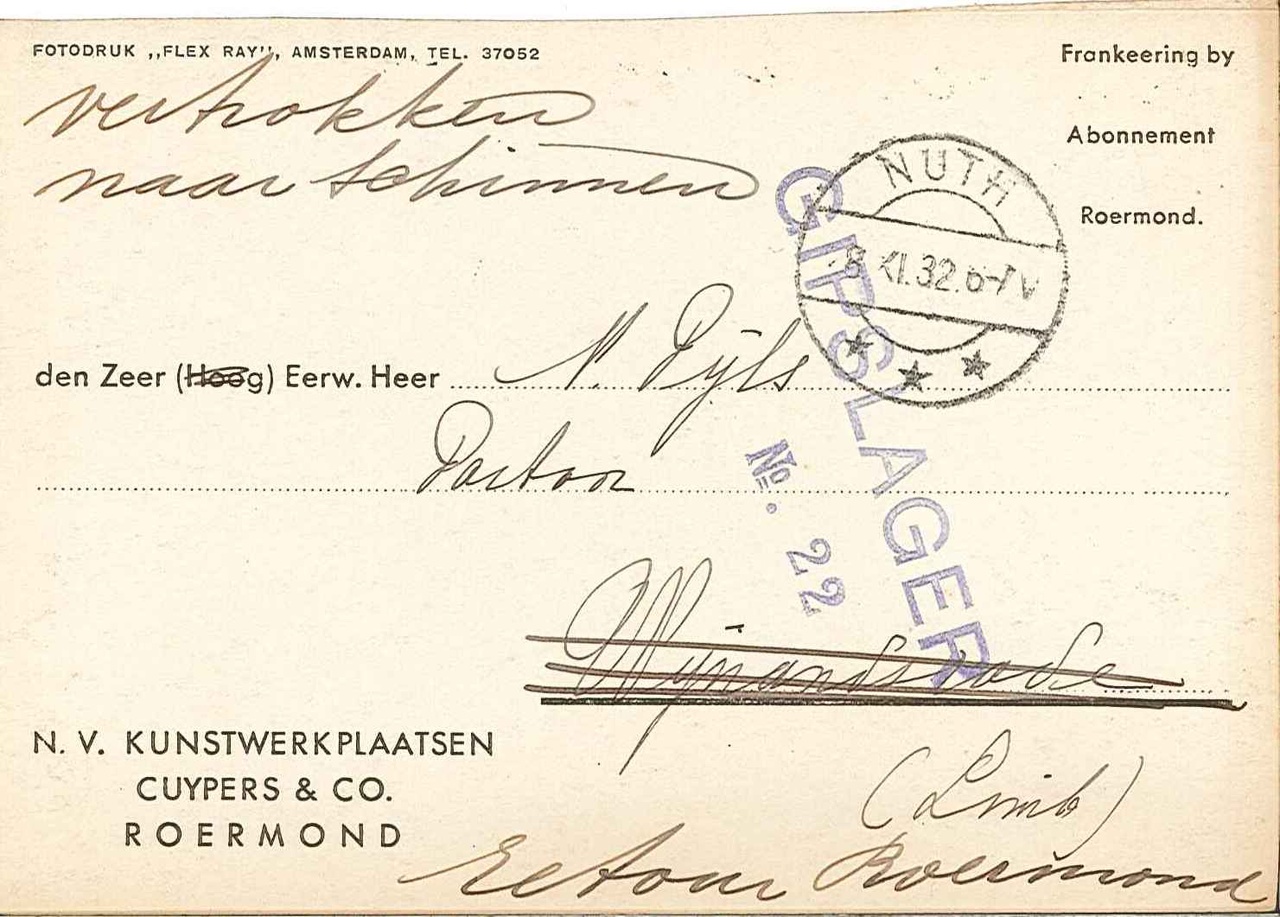 FOTODRUK ,,FLEX RAY'', AMSTERDAM, TEL. 37052
Frankeering by
Abonnement
Roermond.
vertrokken
naar Schinnen
NUTH
8 XI.32.6-7V
GIPSLAGER
No. 22
den Zeer (Hoog) Eerw. Heer N. Pijls
Pastoor
Wijnandsrade
(Limb)
N. V. KUNSTWERKPLAATSEN
CUYPERS & CO.
ROERMOND
Retour Roermond